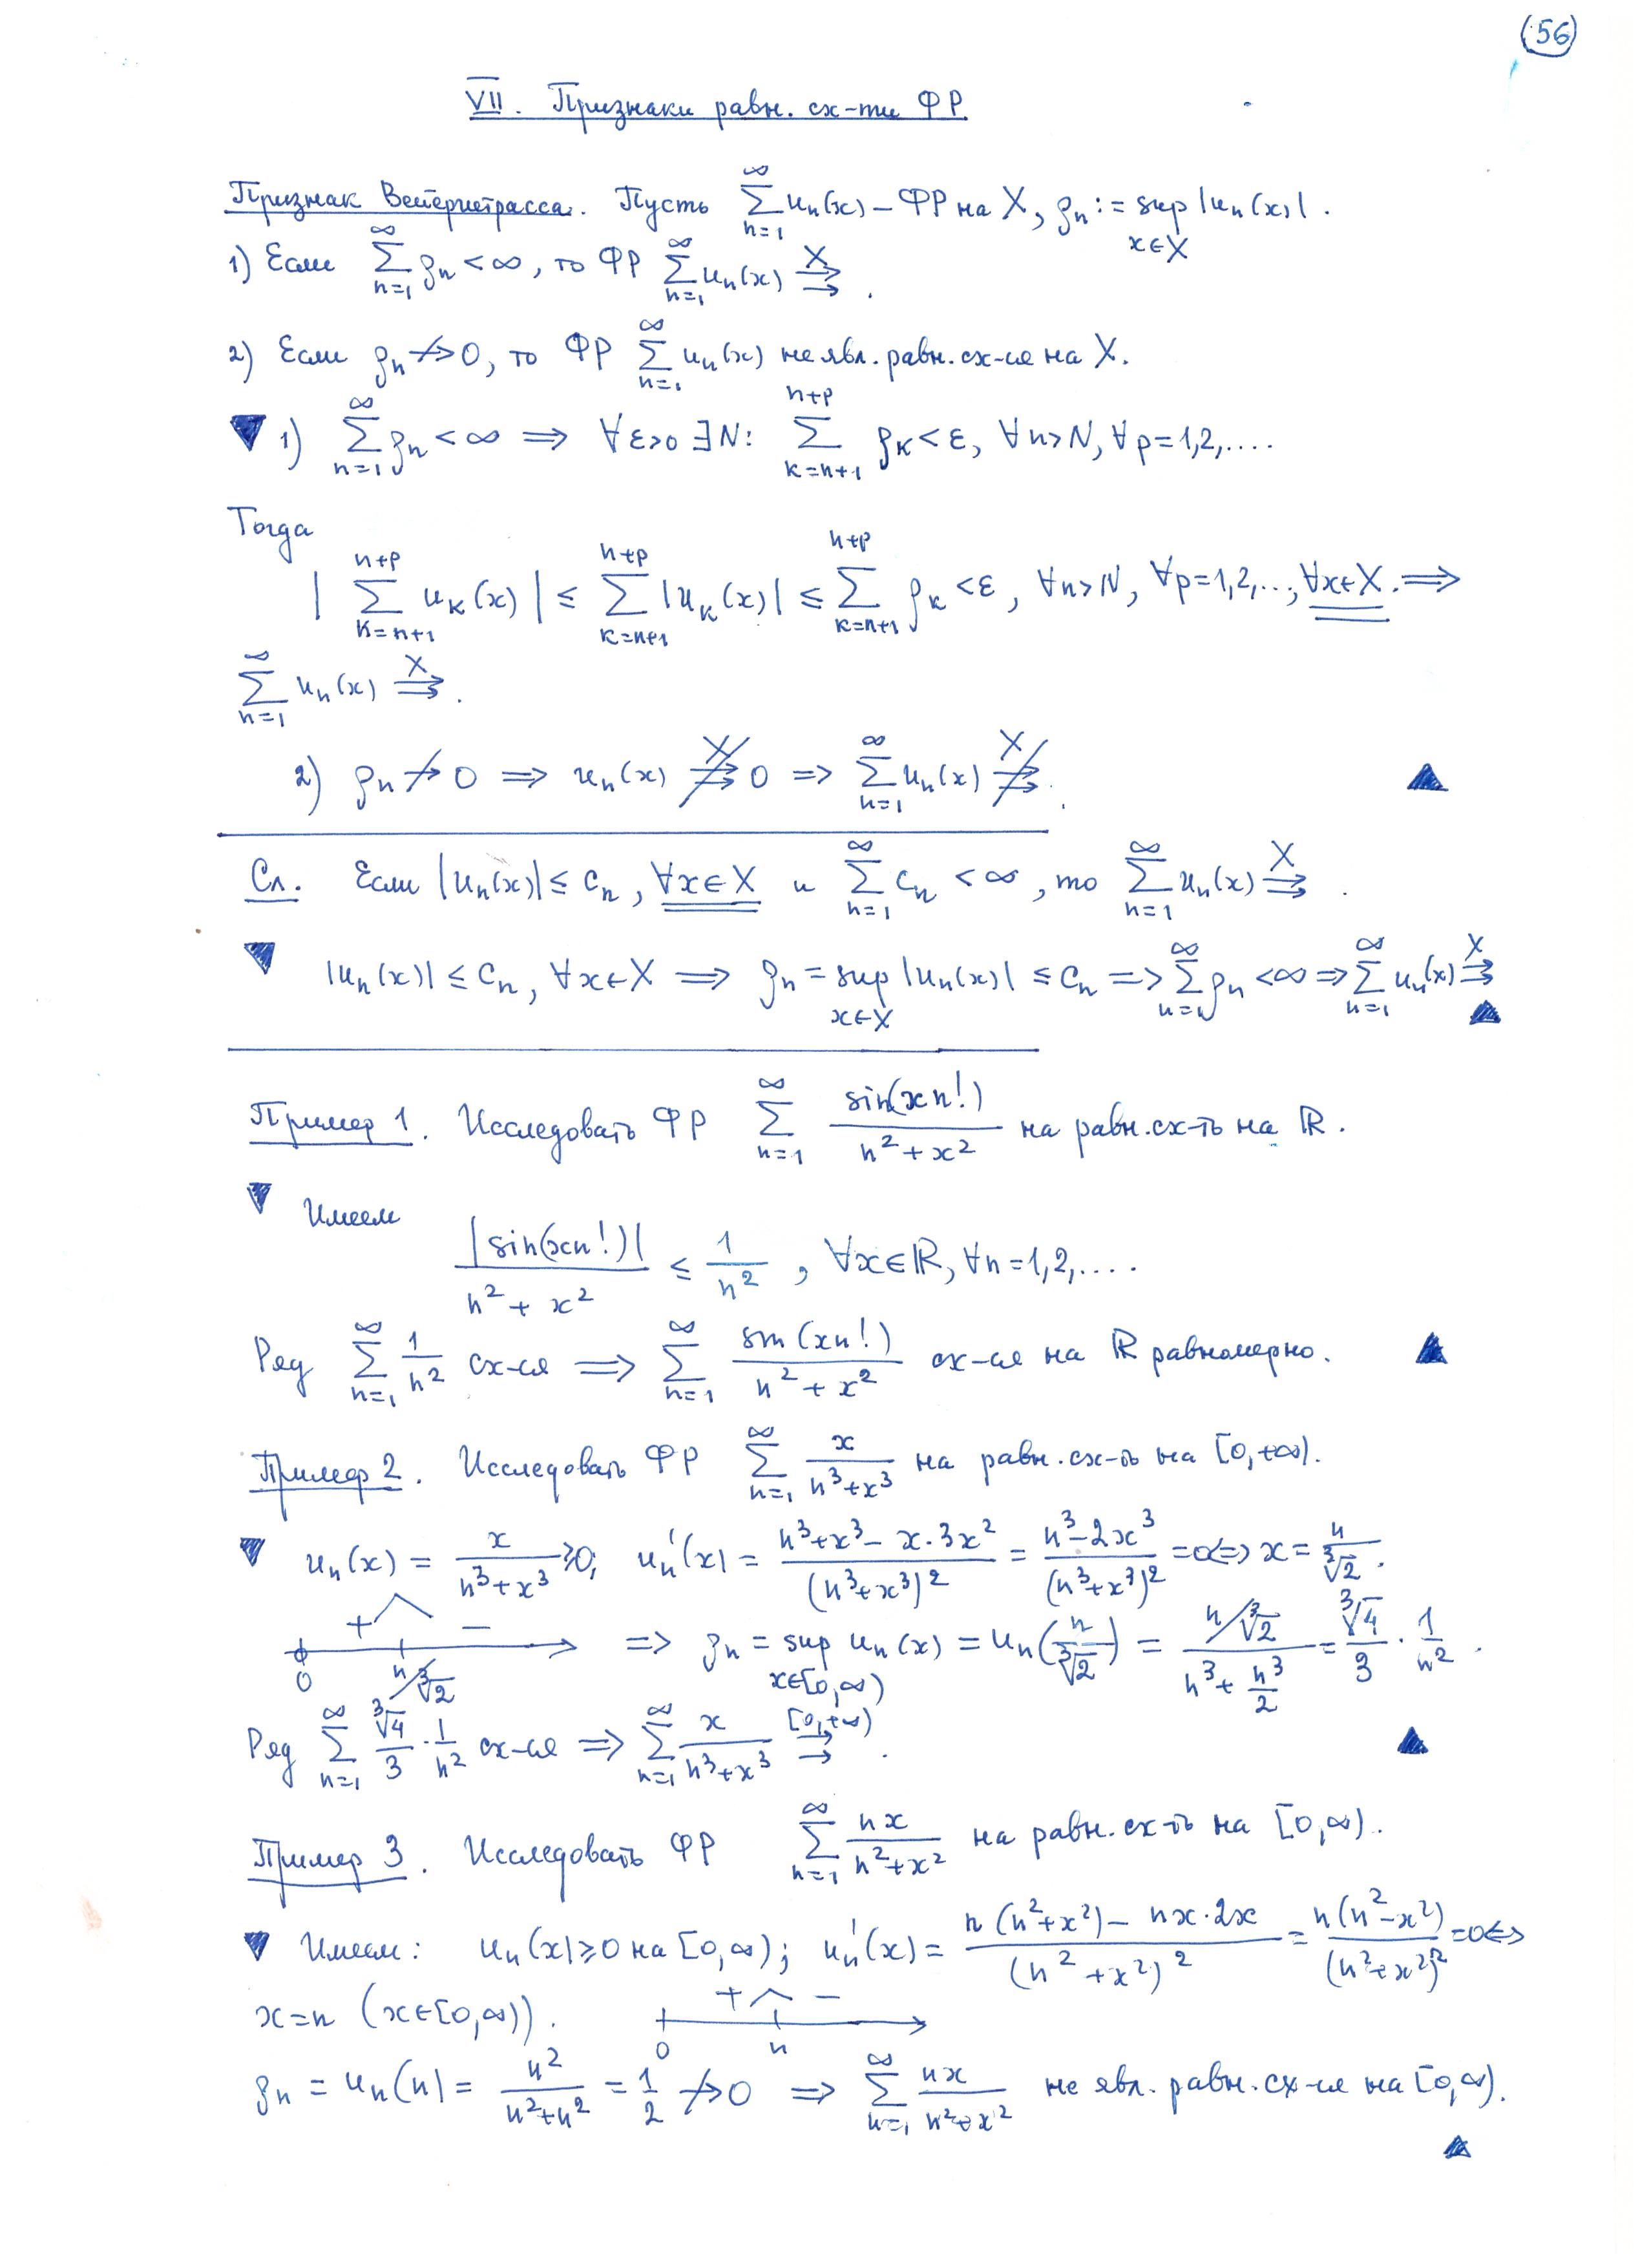 56
VII. Признаки равн. сх-ти ФР.
Признак Вейерштрасса. Пусть $\sum_{n=1}^{\infty} u_n(x)$ – ФР на X, $\rho_n := \sup_{x \in X} |u_n(x)|$.
1) Если $\sum_{n=1}^{\infty} \rho_n < \infty$, то ФР $\sum_{n=1}^{\infty} u_n(x) \overset{X}{\rightrightarrows}$.
2) Если $\rho_n \not\to 0$, то ФР $\sum_{n=1}^{\infty} u_n(x)$ не явл. равн. сх-ся на X.
▼ 1) $\sum_{n=1}^{\infty} \rho_n < \infty \Rightarrow \forall \varepsilon > 0 \; \exists N: \sum_{k=n+1}^{n+p} \rho_k < \varepsilon, \forall n > N, \forall p = 1,2,\ldots.$
Тогда
$\left| \sum_{k=n+1}^{n+p} u_k(x) \right| \le \sum_{k=n+1}^{n+p} |u_k(x)| \le \sum_{k=n+1}^{n+p} \rho_k < \varepsilon, \forall n > N, \forall p = 1,2,\ldots, \forall x \in X. \Rightarrow$
$\sum_{n=1}^{\infty} u_n(x) \overset{X}{\rightrightarrows}$.
2) $\rho_n \not\to 0 \Rightarrow u_n(x) \overset{X}{\not\rightrightarrows} 0 \Rightarrow \sum_{n=1}^{\infty} u_n(x) \overset{X}{\not\rightrightarrows}$. ▲
Сл. Если $|u_n(x)| \le c_n, \forall x \in X$ и $\sum_{n=1}^{\infty} c_n < \infty$, то $\sum_{n=1}^{\infty} u_n(x) \overset{X}{\rightrightarrows}$.
▼ $|u_n(x)| \le c_n, \forall x \in X \Rightarrow \rho_n = \sup_{x \in X} |u_n(x)| \le c_n \Rightarrow \sum_{n=1}^{\infty} \rho_n < \infty \Rightarrow \sum_{n=1}^{\infty} u_n(x) \overset{X}{\rightrightarrows}$ ▲
Пример 1. Исследовать ФР $\sum_{n=1}^{\infty} \frac{\sin(xn!)}{n^2+x^2}$ на равн. сх-ть на ℝ.
▼ Имеем
$\frac{|\sin(xn!)|}{n^2+x^2} \le \frac{1}{n^2}, \forall x \in ℝ, \forall n = 1,2,\ldots.$
Ряд $\sum_{n=1}^{\infty} \frac{1}{n^2}$ сх-ся $\Rightarrow \sum_{n=1}^{\infty} \frac{\sin(xn!)}{n^2+x^2}$ сх-ся на ℝ равномерно. ▲
Пример 2. Исследовать ФР $\sum_{n=1}^{\infty} \frac{x}{n^3+x^3}$ на равн. сх-ть на $[0,+\infty)$.
▼ $u_n(x) = \frac{x}{n^3+x^3} \ge 0; \; u_n'(x) = \frac{n^3+x^3-x \cdot 3x^2}{(n^3+x^3)^2} = \frac{n^3-2x^3}{(n^3+x^3)^2} = 0 \Leftrightarrow x = \frac{n}{\sqrt[3]{2}}$.
+ − 0 $n/\sqrt[3]{2}$ $\Rightarrow \rho_n = \sup_{x \in [0,\infty)} u_n(x) = u_n\left(\frac{n}{\sqrt[3]{2}}\right) = \frac{n/\sqrt[3]{2}}{n^3+\frac{n^3}{2}} = \frac{\sqrt[3]{4}}{3} \cdot \frac{1}{n^2}$.
Ряд $\sum_{n=1}^{\infty} \frac{\sqrt[3]{4}}{3} \cdot \frac{1}{n^2}$ сх-ся $\Rightarrow \sum_{n=1}^{\infty} \frac{x}{n^3+x^3} \overset{[0,+\infty)}{\rightrightarrows}$. ▲
Пример 3. Исследовать ФР $\sum_{n=1}^{\infty} \frac{nx}{n^2+x^2}$ на равн. сх-ть на $[0,\infty)$.
▼ Имеем: $u_n(x) \ge 0$ на $[0,\infty)$; $u_n'(x) = \frac{n(n^2+x^2)-nx \cdot 2x}{(n^2+x^2)^2} = \frac{n(n^2-x^2)}{(n^2+x^2)^2} = 0 \Leftrightarrow$
$x = n \; (x \in [0,\infty))$. + − 0 n
$\rho_n = u_n(n) = \frac{n^2}{n^2+n^2} = \frac{1}{2} \not\to 0 \Rightarrow \sum_{n=1}^{\infty} \frac{nx}{n^2+x^2}$ не явл. равн. сх-ся на $[0,\infty)$. ▲